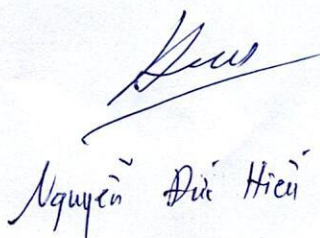 Nguyễn Đức Hiếu